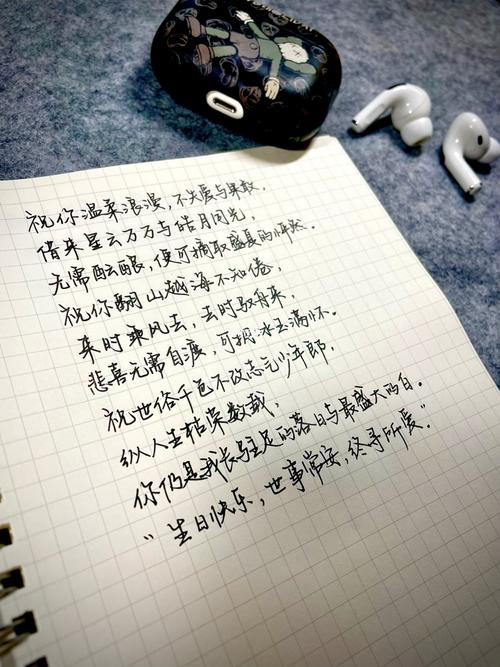 祝你温柔浪漫，不失爱与果敢，
借来星云万万与皓月同光，
无需酝酿，便可摘取盛夏的怦然。
祝你翻山越海不知倦，
来时乘风去，去时驭舟来，
悲喜无需自渡，可拥冰玉满怀。
祝世俗千色不改志气少年郎，
纵人生枯荣数载，
你仍是我长驻足的落日与最盛大的白。
"生日快乐，世事常安，终寻所爱。"